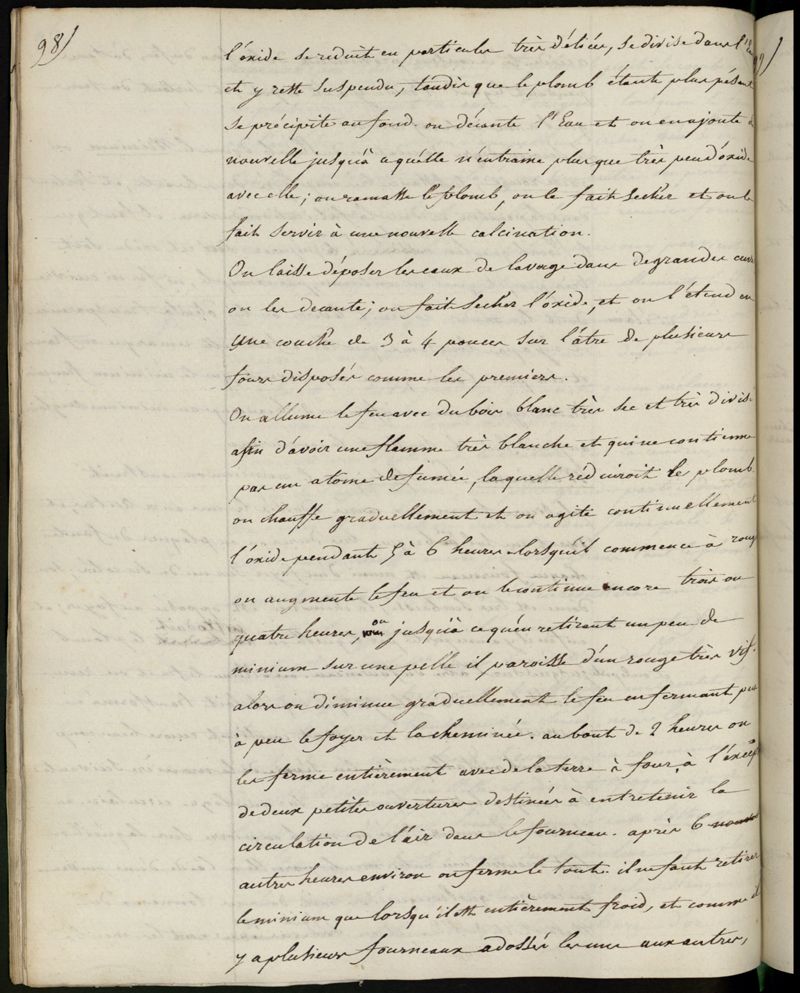 98)
l'oxide se reduit en particules très déliées, se divise dans l'Eau
et y reste suspendu, tandis que le plomb étant plus pésant
se précipite au fond. on décante l'Eau et on en ajoute de
nouvelle jusqu'à ce qu'elle n'entraine plus que très peu d'oxide
avec elle; on ramasse le plomb, on le fait secher et on le
fait servir à une nouvelle calcination.
On laisse déposer les eaux de lavage dans de grandes cuves
on les decante; on fait secher l'oxide, et on l'étend en
une couche de 3 à 4 pouces sur l'âtre de plusieurs
fours disposés comme les premiers.
On allume le feu avec du bois blanc très sec et très divisé
afin d'avoir une flamme très blanche et qui ne contienne
pas un atome de fumée, laquelle réduiroit le plomb.
on chauffe graduellement et on agite continuellement
l'oxide pendant 5 à 6 heures lorsqu'il commence à rougir
on augmente le feu et on le continue encore trois ou
quatre heures, ou jusqu'à ce qu'en retirant un peu de
minium sur une pelle il paroisse d'un rouge très vif.
alors on diminue graduellement le feu en fermant peu
à peu le foyer et la cheminée. au bout de 2 heures on
les ferme entièrement avec de la terre à four, à l'excep
de deux petites ouvertures destinées à entretenir la
circulation de l'air dans le fourneau. après 6
autres heures environ on ferme le tout. il ne faut retirer
le minium que lorsqu'il est entièrement froid, et comme il
y a plusieurs fourneaux adossés les uns aux autres,